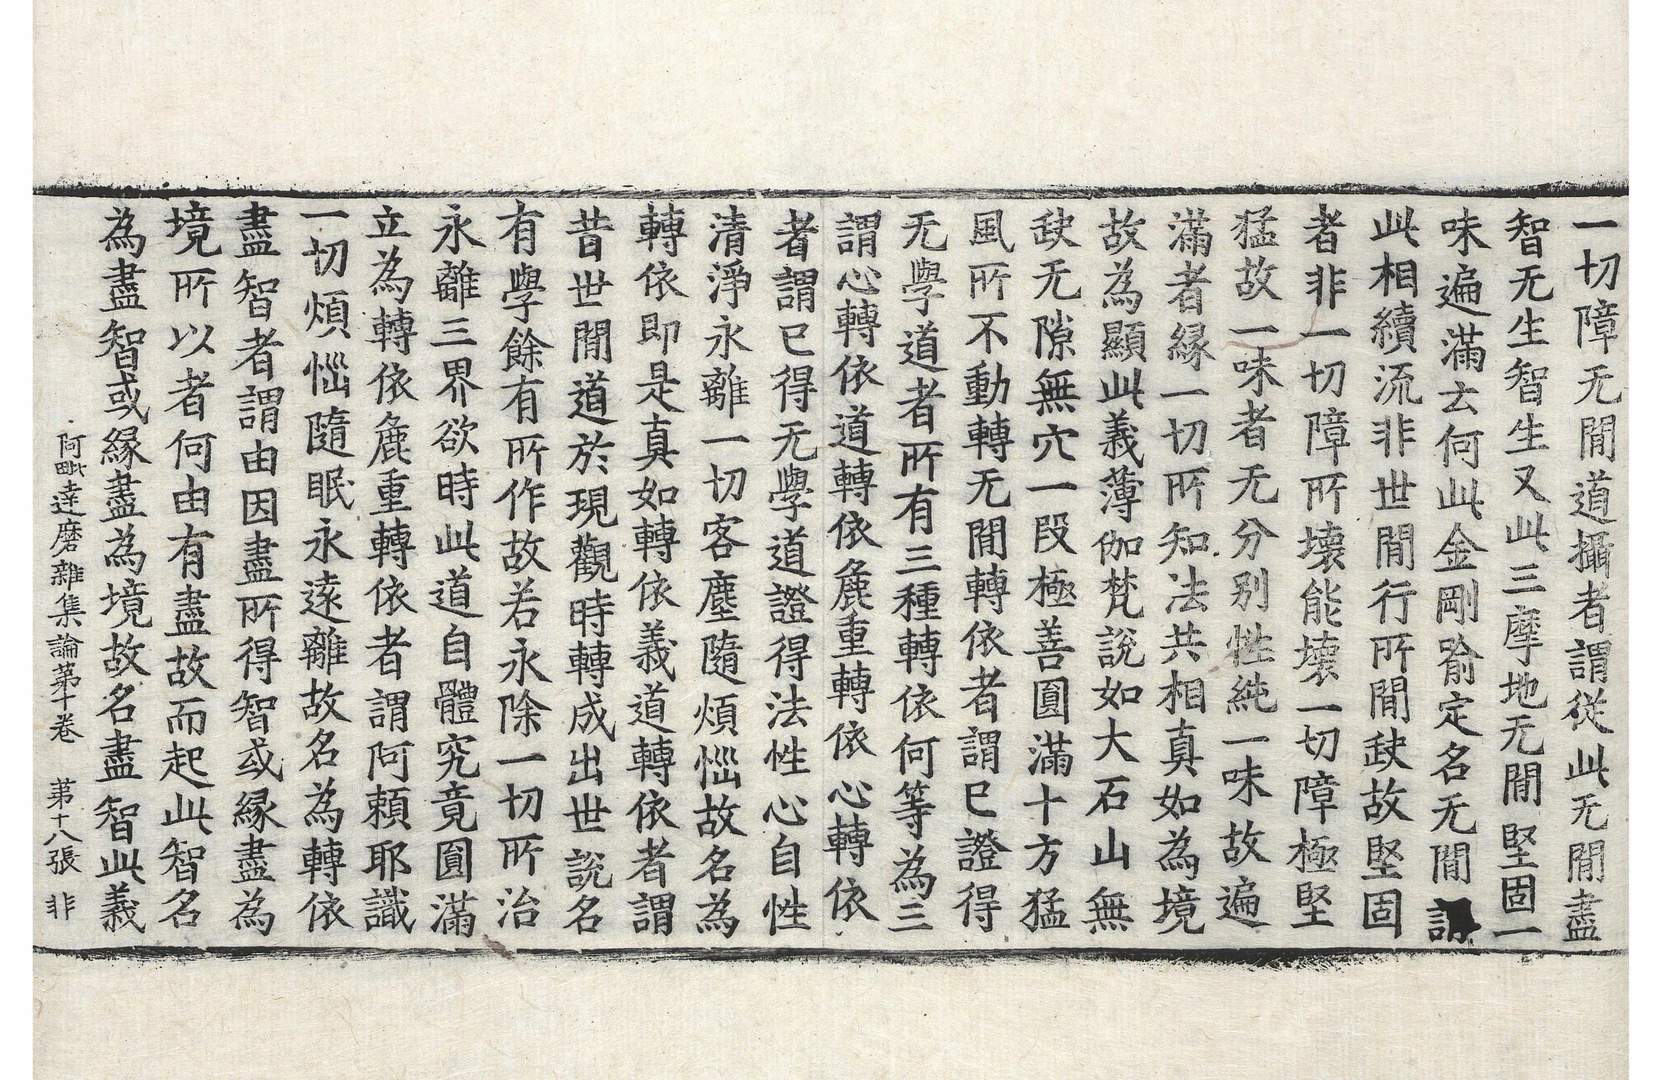 一切障无閒道攝者謂從此无閒盡
智无生智生又此三摩地无閒堅固一
味遍滿云何此金剛喻定名无閒謂
此相續流非世閒行所閒缺故堅固
者非一切障所壞能壞一切障極堅
猛故一味者无分別性純一味故遍
滿者緣一切所知法共相真如為境
故為顯此義薄伽梵說如大石山無
缺无隙無穴一段極善圓滿十方猛
風所不動轉无閒轉依者謂已證得
无學道者所有三種轉依何等為三
謂心轉依道轉依麁重轉依心轉依
者謂已得无學道證得法性心自性
清淨永離一切客塵隨煩惱故名為
轉依即是真如轉依義道轉依者謂
昔世閒道於現觀時轉成出世說名
有學餘有所作故若永除一切所治
永離三界欲時此道自體究竟圓滿
立為轉依麁重轉依者謂阿賴耶識
一切煩惱隨眠永遠離故名為轉依
盡智者謂由因盡所得智或緣盡為
境所以者何由有盡故而起此智名
為盡智或緣盡為境故名盡智此義
阿毗達磨雜集論第十卷 第十八張 非